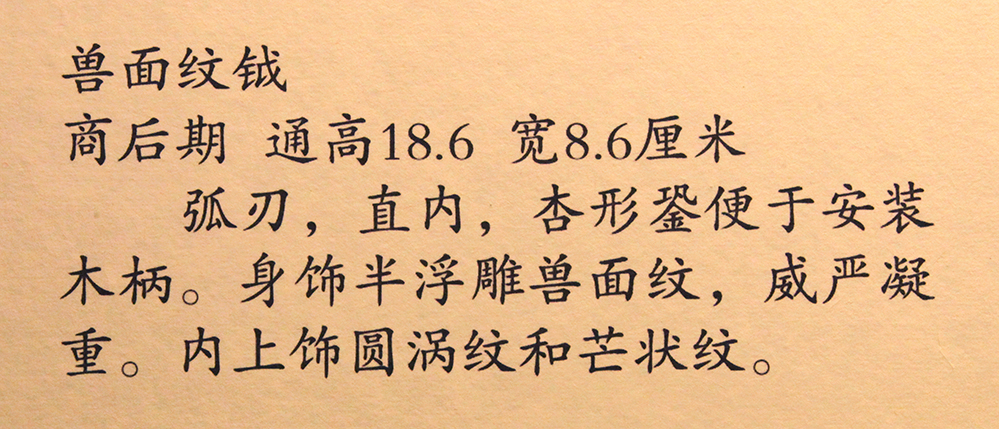 兽面纹钺
商后期 通高18.6 宽8.6厘米
弧刃，直内，杏形銎便于安装
木柄。身饰半浮雕兽面纹，威严凝
重。内上饰圆涡纹和芒状纹。